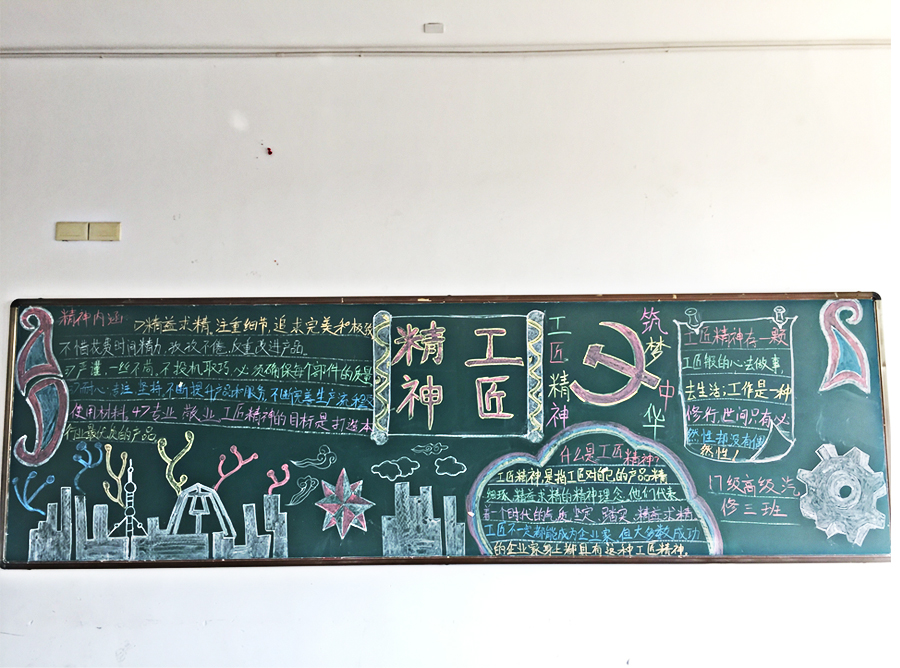 精神内涵
1>精益求精,注重细节,追求完美和极致
不惜花费时间精力,孜孜不倦,反复改进产品
2>严谨 一丝不苟 不投机取巧 必须确保每个部件的质量
3>耐心 专注 坚持 不断提升产品和服务 不断完善生产流程
使用材料 4>专业 敬业 工匠精神的目标是 打造本
行业最优质的产品
工匠
精神
工匠精神
筑梦中华
什么是工匠精神?
工匠精神,是指工匠对自己的产品精
细琢,精益求精的精神理念,他们代表
着一个时代的气质,坚定,踏实,精益求精
工匠不一定都能成为企业家,但大多数成功
的企业家身上都具有这种工匠精神。
工匠精神在一颗
工匠般的心去做事
去生活;工作是一种
修行,世间只有必
然性却没有偶
然性!
17级高级汽
修三班